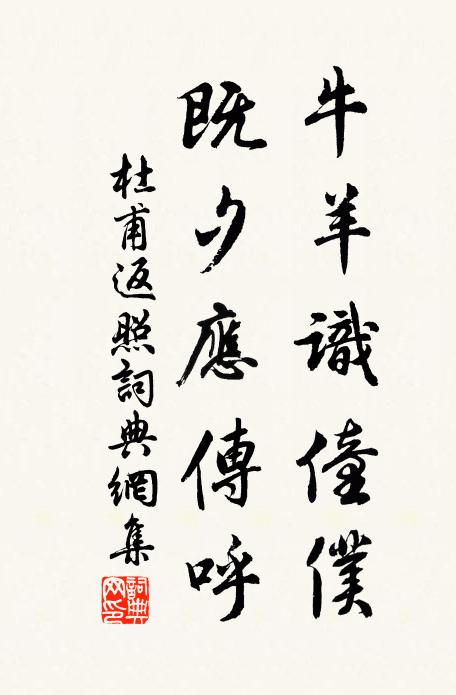 牛羊識僮僕
既夕應傳呼
杜甫返照詞典網集
詞典网印